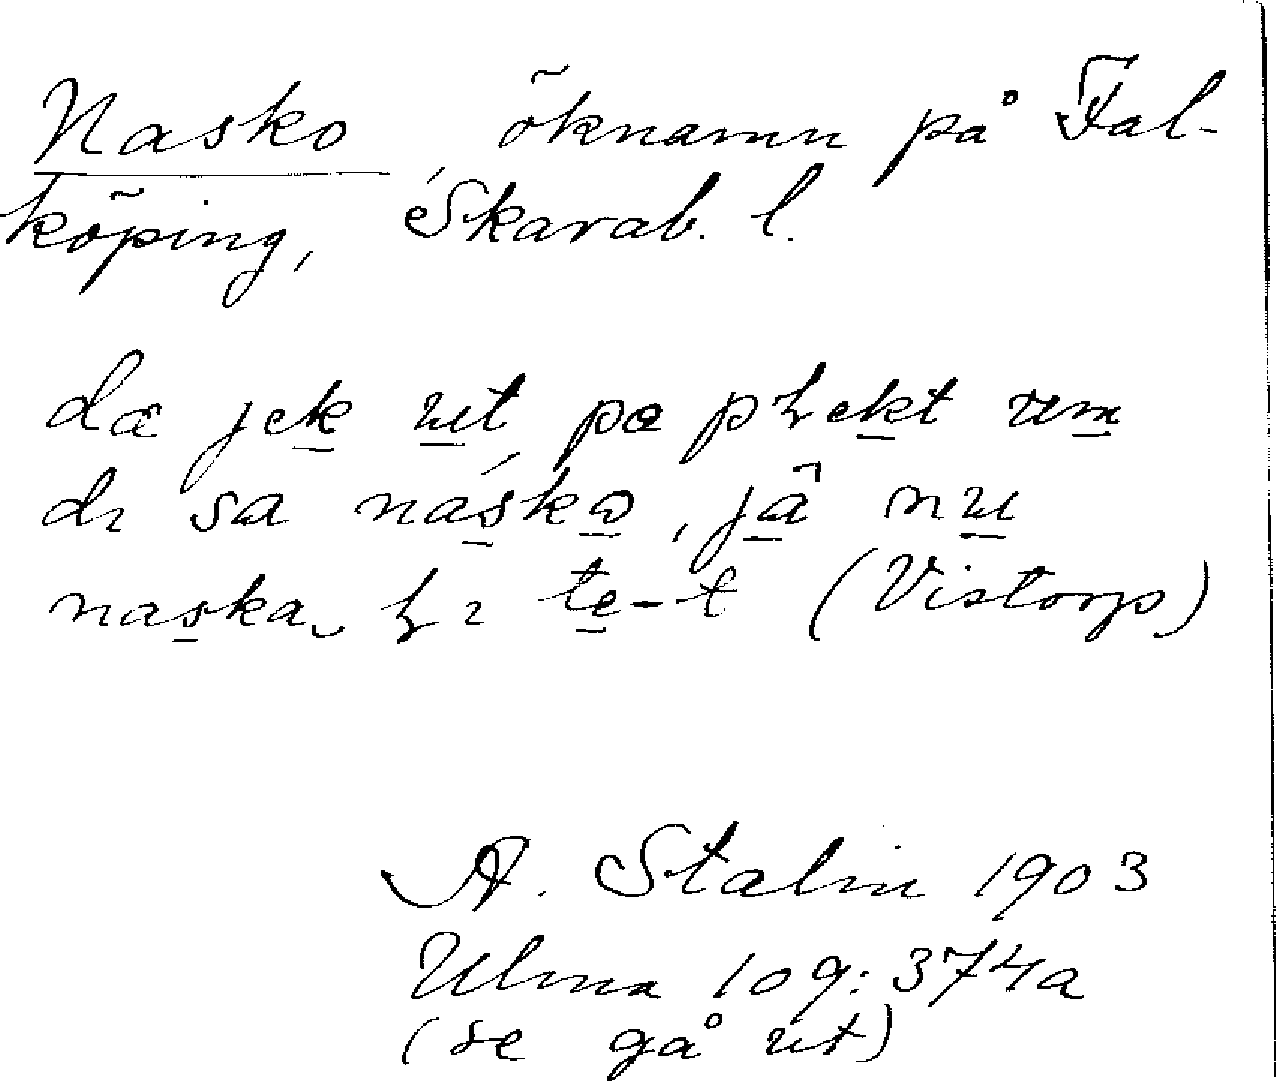 Nasko, öknamn på Fal-
köping, Skarab. l.
dæ jek ut pæ phekt um
di sa nasko, jâ nu
naska
te-t (Vistorp)
A. Stalin 1903
Ulma 109:374a
(se gå ut)